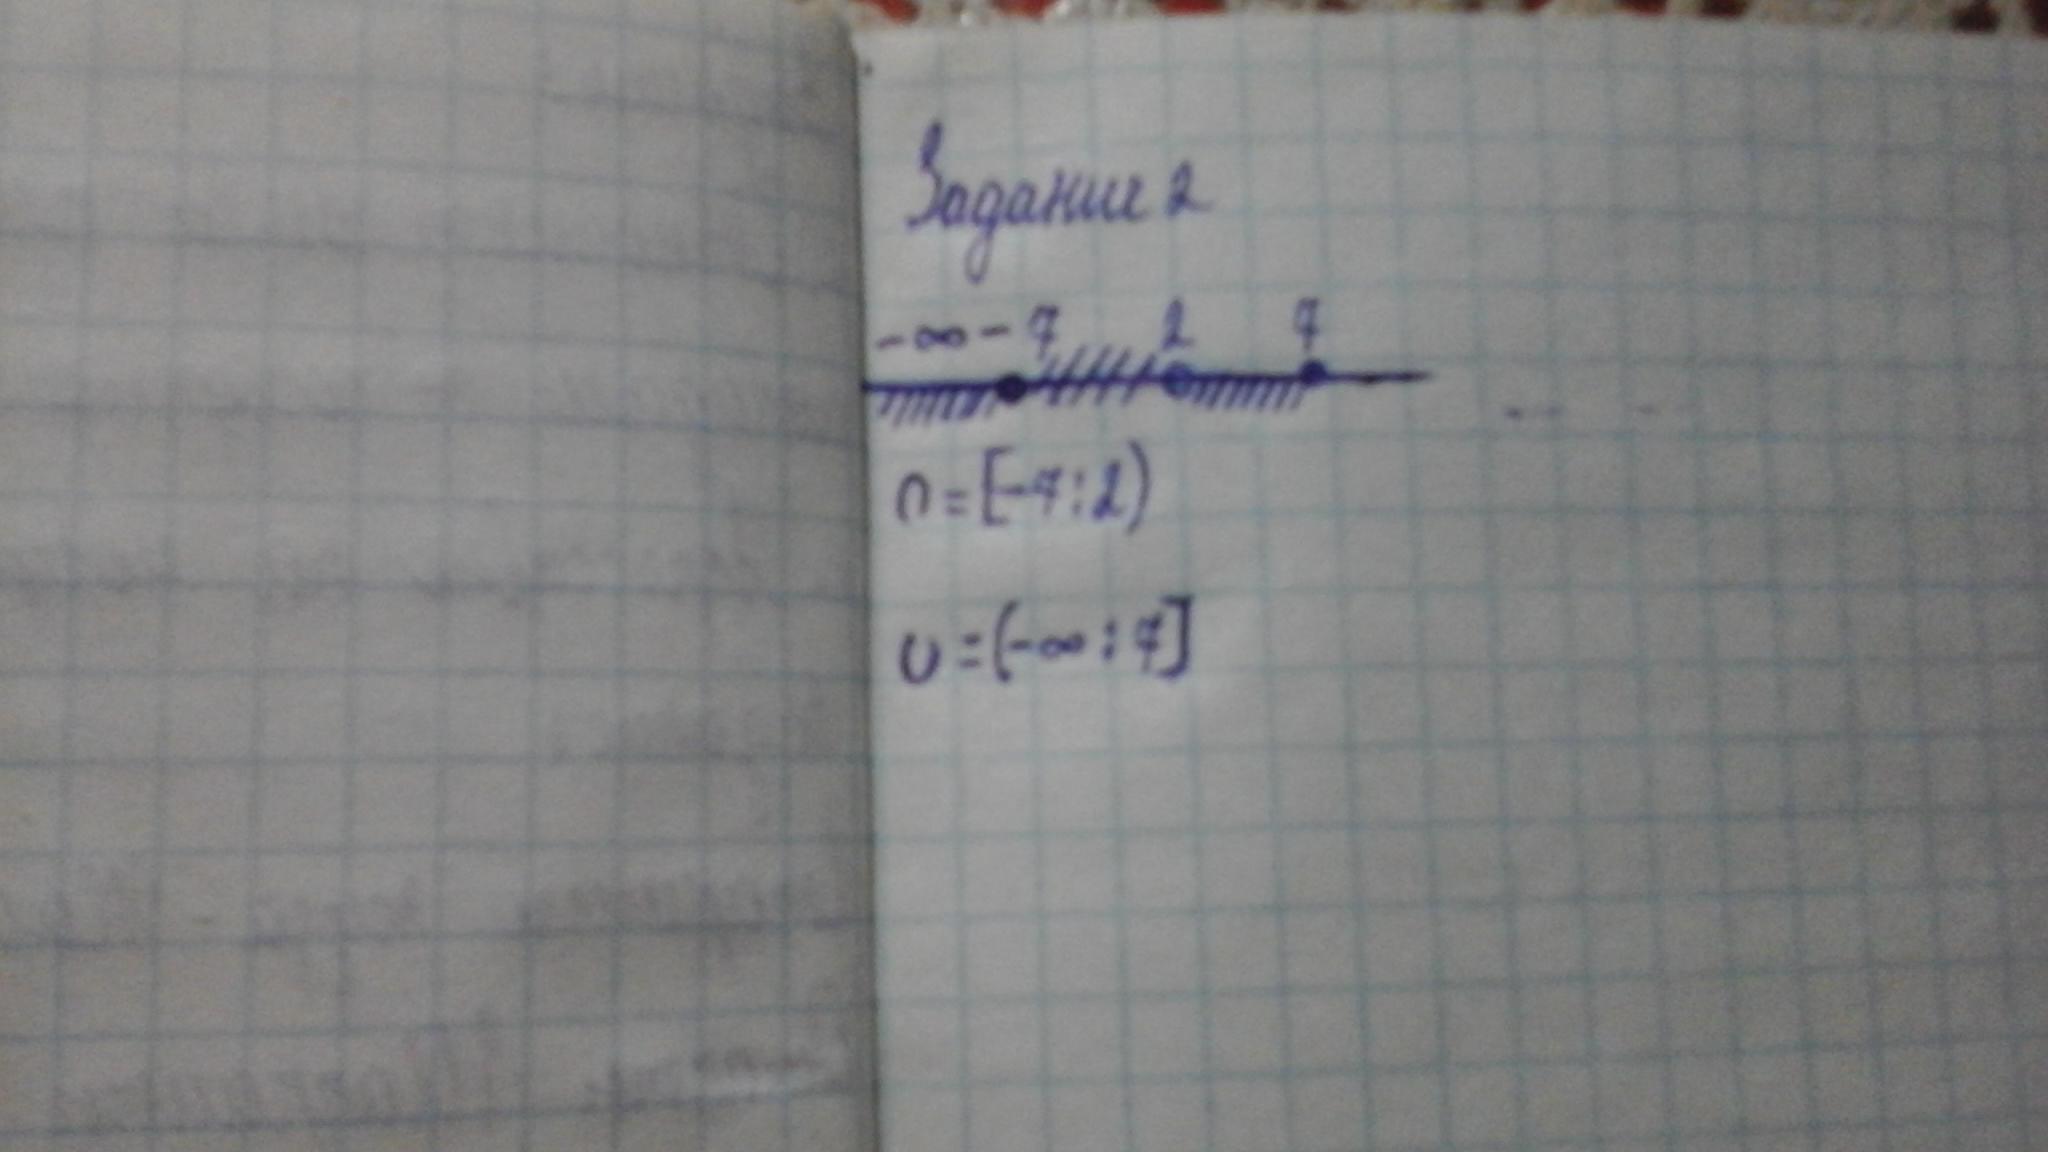 Задание 2
-∞ -7 2 7
∩ = [-7 : 2)
∪ = (-∞ : 7]